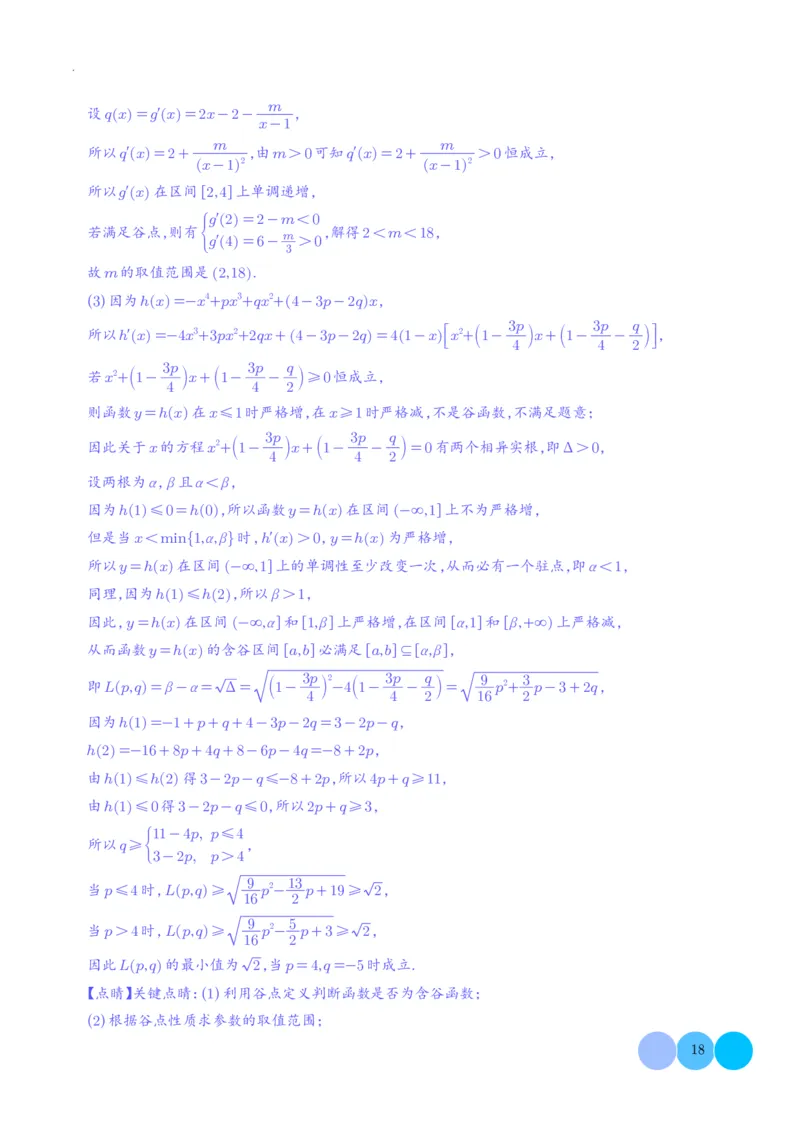 设q(x)=g′(x)=2x-2-m/(x-1),
所以q′(x)=2+m/(x-1)²,由m>0可知q′(x)=2+m/(x-1)²>0恒成立,
所以g′(x)在区间[2,4]上单调递增,
若满足谷点,则有{g′(2)=2-m<0 g′(4)=6-m/3>0,解得2<m<18,
故m的取值范围是(2,18).
(3)因为h(x)=-x⁴+px³+qx²+(4-3p-2q)x,
所以h′(x)=-4x³+3px²+2qx+(4-3p-2q)=4(1-x)[x²+(1-3p/4)x+(1-3p/4-q/2)],
若x²+(1-3p/4)x+(1-3p/4-q/2)⩾0恒成立,
则函数y=h(x)在x⩽1时严格增,在x⩾1时严格减,不是谷函数,不满足题意;
因此关于x的方程x²+(1-3p/4)x+(1-3p/4-q/2)=0有两个相异实根,即Δ>0,
设两根为α,β且α<β,
因为h(1)⩽0=h(0),所以函数y=h(x)在区间(-∞,1]上不为严格增,
但是当x<min{1,α,β}时,h′(x)>0,y=h(x)为严格增,
所以y=h(x)在区间(-∞,1]上的单调性至少改变一次,从而必有一个驻点,即α<1,
同理,因为h(1)⩽h(2),所以β>1,
因此,y=h(x)在区间(-∞,α]和[1,β]上严格增,在区间[α,1]和[β,+∞)上严格减,
从而函数y=h(x)的含谷区间[a,b]必满足[a,b]⊆[α,β],
即L(p,q)=β-α=√Δ=√((1-3p/4)²-4(1-3p/4-q/2))=√(9/16p²+3/2p-3+2q),
因为h(1)=-1+p+q+4-3p-2q=3-2p-q,
h(2)=-16+8p+4q+8-6p-4q=-8+2p,
由h(1)⩽h(2)得3-2p-q⩽-8+2p,所以4p+q⩾11,
由h(1)⩽0得3-2p-q⩽0,所以2p+q⩾3,
所以q⩾{11-4p, p⩽4 3-2p, p>4,
当p⩽4时,L(p,q)⩾√(9/16p²-13/2p+19)⩾√2,
当p>4时,L(p,q)⩾√(9/16p²-5/2p+3)⩾√2,
因此L(p,q)的最小值为√2,当p=4,q=-5时成立.
【点睛】关键点睛:(1)利用谷点定义判断函数是否为含谷函数;
(2)根据谷点性质求参数的取值范围;
18